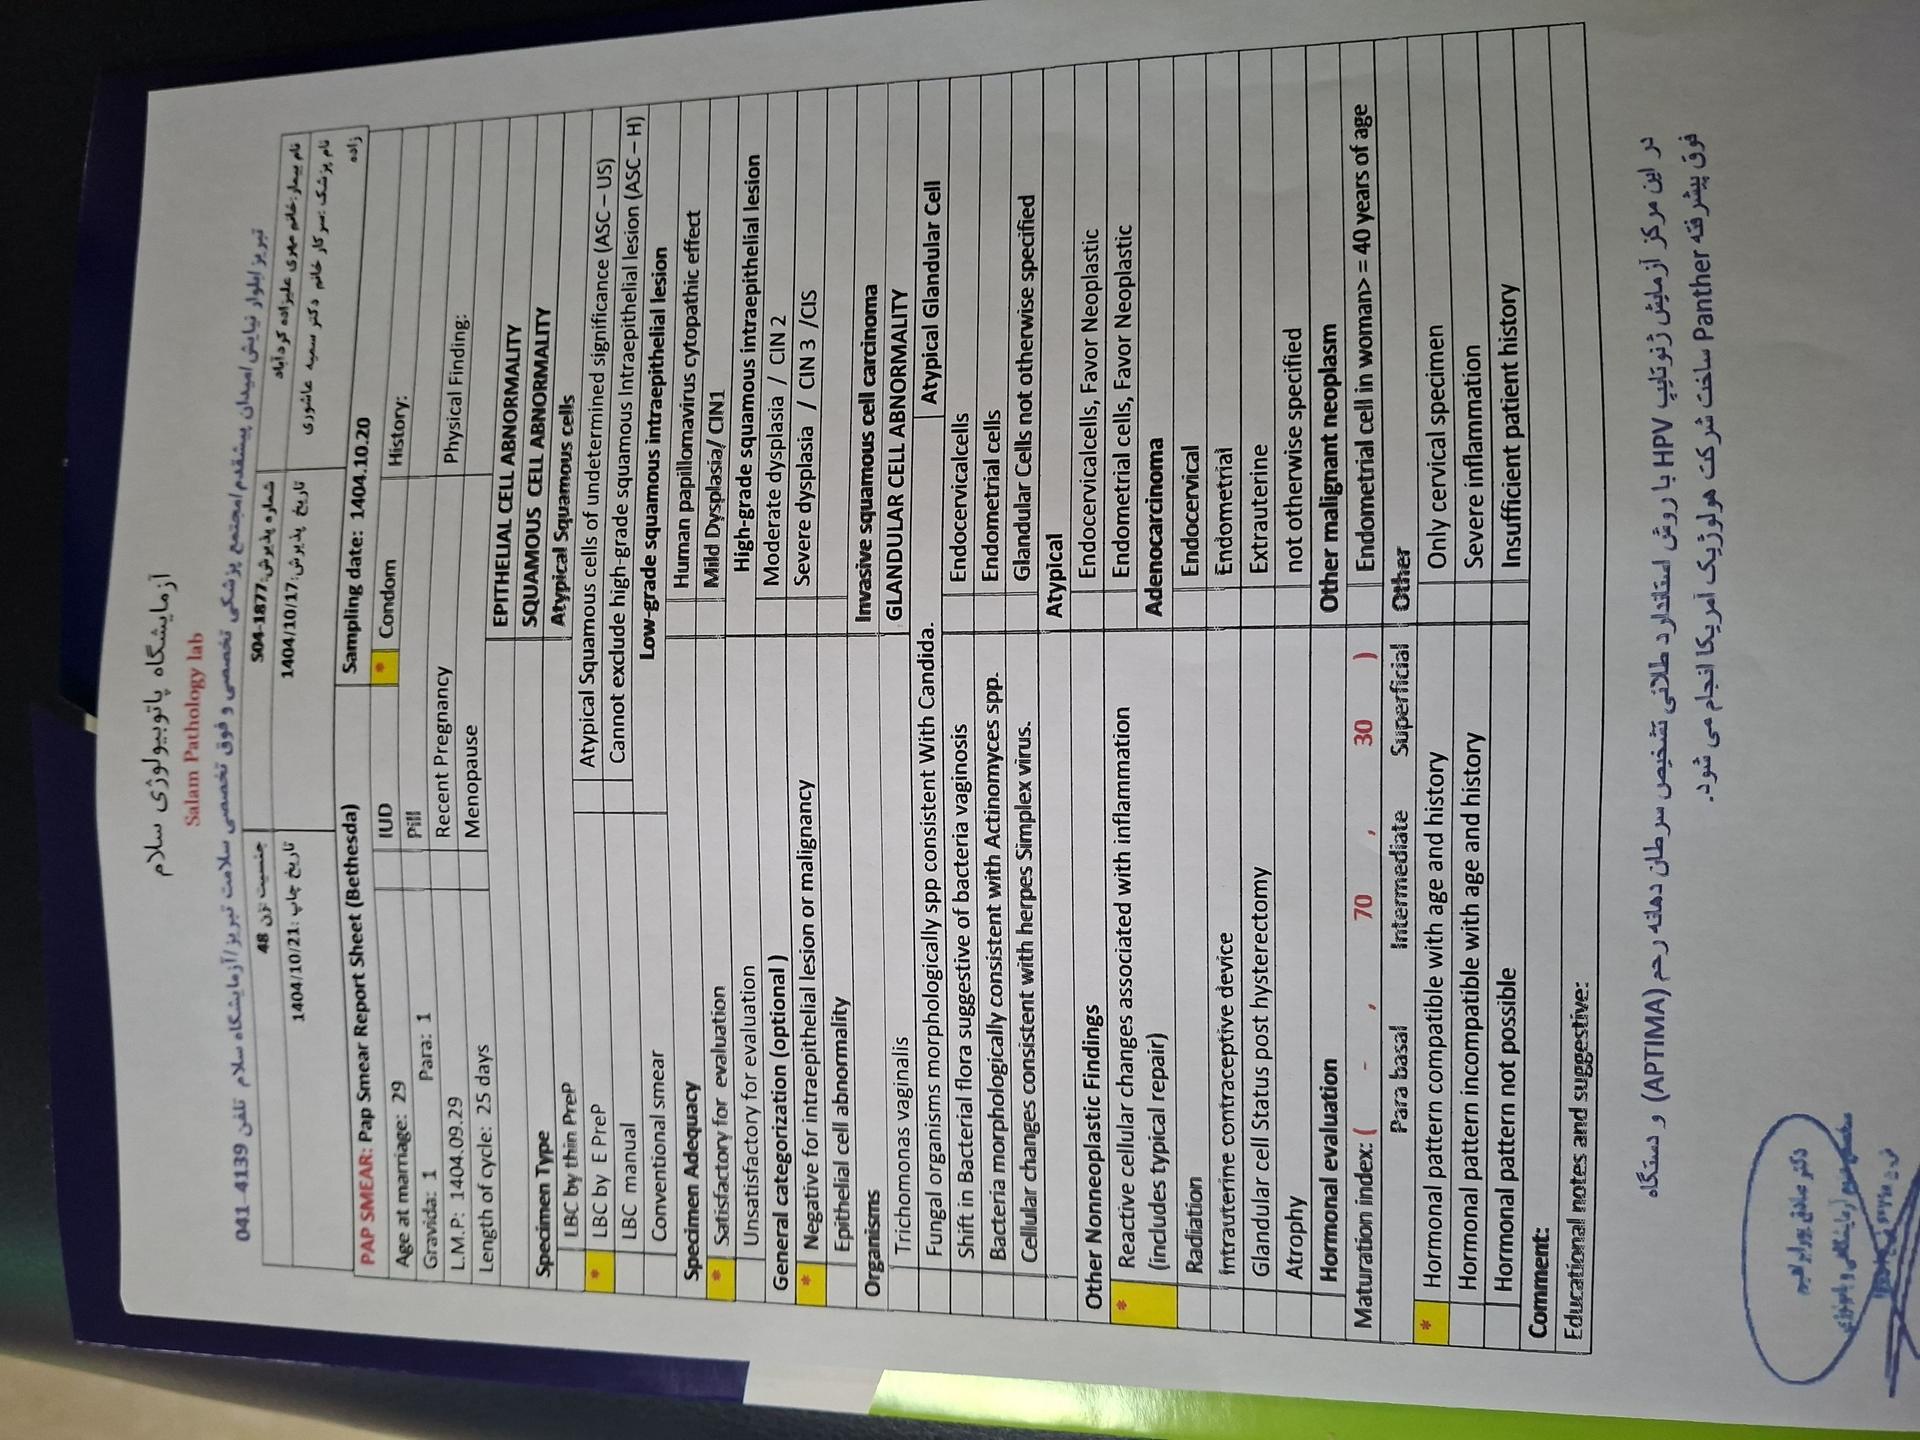 آزمایشگاه پاتوبیولوژی سلام
Salam Pathology lab
تبریز/بلوار نیایش/میدان پیشقدم/مجتمع پزشکی تخصصی و فوق تخصصی سلامت تبریز/آزمایشگاه سلام تلفن 4139-041
نام بیمار:خانم مهری علیزاده کردآباد
شماره پذیرش:S04-1877
جنسیت :زن 48
نام پزشک :سرکار خانم دکتر سمیه عاشوری زاده
تاریخ پذیرش:1404/10/17
تاریخ چاپ :1404/10/21
PAP SMEAR: Pap Smear Report Sheet (Bethesda)
Sampling date: 1404.10.20
Age at marriage: 29
IUD
* Condom
History:
Gravida: 1 Para: 1
Pill
L.M.P: 1404.09.29
Recent Pregnancy
Physical Finding:
Length of cycle: 25 days
Menopause
EPITHELIAL CELL ABNORMALITY
SQUAMOUS CELL ABNORMALITY
Specimen Type
Atypical Squamous cells
LBC by thin PreP
Atypical Squamous cells of undetermined significance (ASC – US)
* LBC by E PreP
Cannot exclude high-grade squamous Intraepithelial lesion (ASC – H)
LBC manual
Low-grade squamous intraepithelial lesion
Conventional smear
Human papillomavirus cytopathic effect
Specimen Adequacy
Mild Dysplasia/ CIN1
* Satisfactory for evaluation
High-grade squamous intraepithelial lesion
Unsatisfactory for evaluation
Moderate dysplasia / CIN 2
General categorization (optional )
Severe dysplasia / CIN 3 /CIS
* Negative for intraepithelial lesion or malignancy
Epithelial cell abnormality
Invasive squamous cell carcinoma
Organisms
GLANDULAR CELL ABNORMALITY
Trichomonas vaginalis
Atypical Glandular Cell
Fungal organisms morphologically spp consistent With Candida.
Endocervicalcells
Shift in Bacterial flora suggestive of bacteria vaginosis
Endometrial cells
Bacteria morphologically consistent with Actinomyces spp.
Glandular Cells not otherwise specified
Cellular changes consistent with herpes Simplex virus.
Atypical
Other Nonneoplastic Findings
Endocervicalcells, Favor Neoplastic
* Reactive cellular changes associated with inflammation
(includes typical repair)
Endometrial cells, Favor Neoplastic
Adenocarcinoma
Radiation
Endocervical
Intrauterine contraceptive device
Endometrial
Glandular cell Status post hysterectomy
Extrauterine
Atrophy
not otherwise specified
Hormonal evaluation
Other malignant neoplasm
Maturation index: ( - , 70 , 30 )
Endometrial cell in woman> = 40 years of age
Para basal Intermediate Superficial
Other
* Hormonal pattern compatible with age and history
Only cervical specimen
Hormonal pattern incompatible with age and history
Severe inflammation
Hormonal pattern not possible
Insufficient patient history
Comment:
Educational notes and suggestive:
در این مرکز آزمایش ژنوتایپ HPV با روش استاندارد طلائی تشخیص سرطان دهانه رحم (APTIMA) و دستگاه
فوق پیشرفته Panther ساخت شرکت هولوژیک آمریکا انجام می شود.